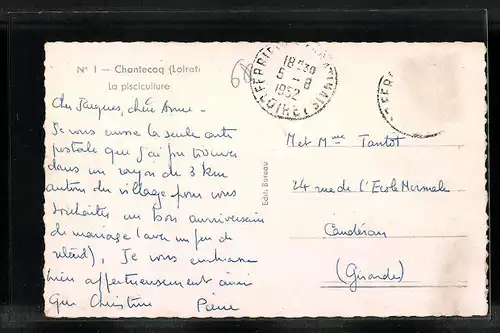 N° 1 — Chantecoq (Loiret)
La pisciculture
Cher Jacques, chère Anne -
Je vous envoie la seule carte
postale que j'ai pu trouver
dans un rayon de 3 km
autour du village pour vous
souhaiter un bon anniversaire
de mariage (avec un peu de
retard). Je vous embrasse
bien affectueusement ainsi
que Christine Pierre
Edit. Bareau
FERRIÈRES
18H30
5 - 8
1952
LOIRET
M et Mme Tantot
24 rue de l'Ecole Normale
Caudéran
(Gironde)